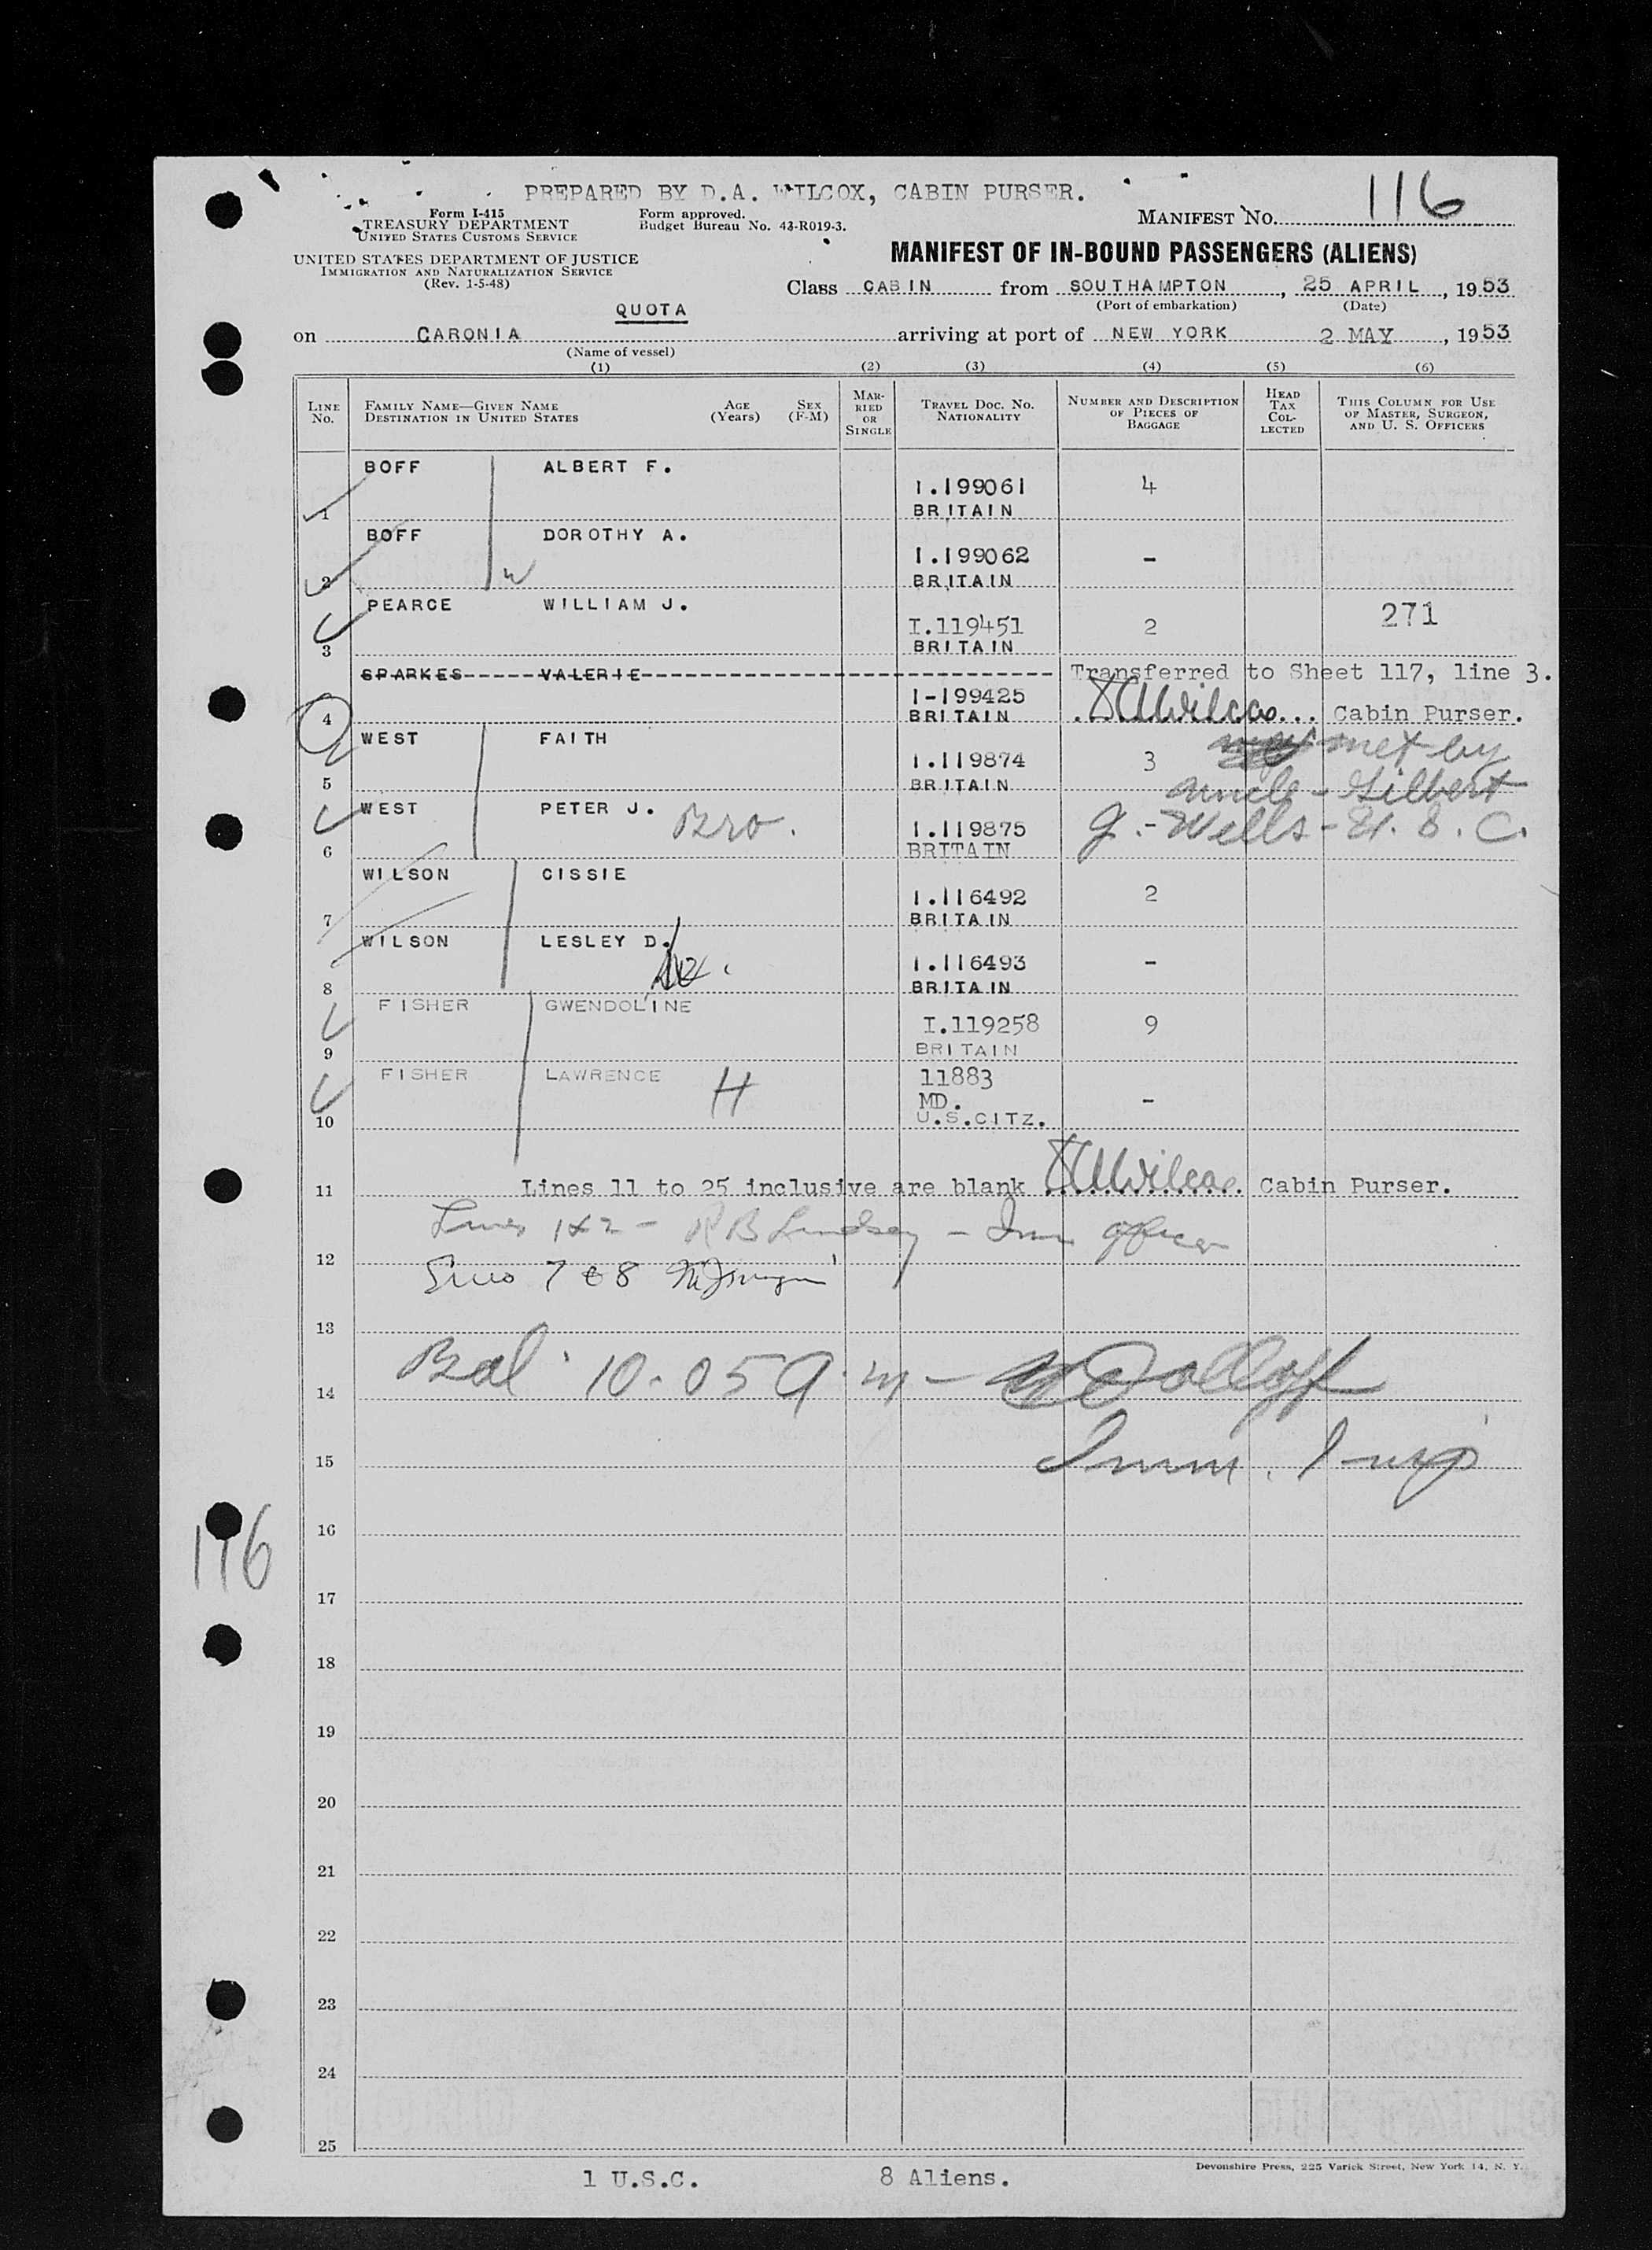 PREPARED BY D.A. WILCOX, CABIN PURSER.
Form I-415
TREASURY DEPARTMENT
UNITED STATES CUSTOMS SERVICE
Form approved.
Budget Bureau No. 43-R019-3.
MANIFEST NO. 116
UNITED STATES DEPARTMENT OF JUSTICE
IMMIGRATION AND NATURALIZATION SERVICE
(Rev. 1-5-48)
MANIFEST OF IN-BOUND PASSENGERS (ALIENS)
Class CABIN from SOUTHAMPTON, 25 APRIL, 1953
(Port of embarkation) (Date)
QUOTA
on CARONIA arriving at port of NEW YORK 2 MAY, 1953
(Name of vessel)
(1) (2) (3) (4) (5) (6)
LINE NO.
FAMILY NAME—GIVEN NAME
DESTINATION IN UNITED STATES
AGE (Years)
SEX (F-M)
MARRIED OR SINGLE
TRAVEL DOC. NO. NATIONALITY
NUMBER AND DESCRIPTION OF PIECES OF BAGGAGE
HEAD TAX COLLECTED
THIS COLUMN FOR USE OF MASTER, SURGEON, AND U. S. OFFICERS
BOFF ALBERT F.
I.199061 4
1 BRITAIN
BOFF DOROTHY A.
I.199062 -
2 W BRITAIN
PEARCE WILLIAM J. 271
I.119451 2
3 BRITAIN
SPARKES VALERIE Transferred to Sheet 117, line 3.
I-199425
4 BRITAIN DAWilcox Cabin Purser.
WEST FAITH met by
I.119874 3
5 BRITAIN uncle - Gilbert
WEST PETER J. Bro.
I.119875 G. - Wells - U.S.C.
6 BRITAIN
WILSON CISSIE
I.116492 2
7 BRITAIN
WILSON LESLEY D.
I.116493 -
8 BRITAIN
FISHER GWENDOLINE
I.119258 9
9 BRITAIN
FISHER LAWRENCE H
11883
MD. -
10 U.S.CITZ.
11 Lines 11 to 25 inclusive are blank DAWilcox Cabin Purser.
Lines 1&2 - R B Lindsay - Imm Officer
12
Lines 7 & 8
13
Bal. 10.05 a.m -
14
Imm. Insp
15
16
116
17
18
19
20
21
22
23
24
25
Devonshire Press, 225 Varick Street, New York 14, N. Y.
1 U.S.C. 8 Aliens.